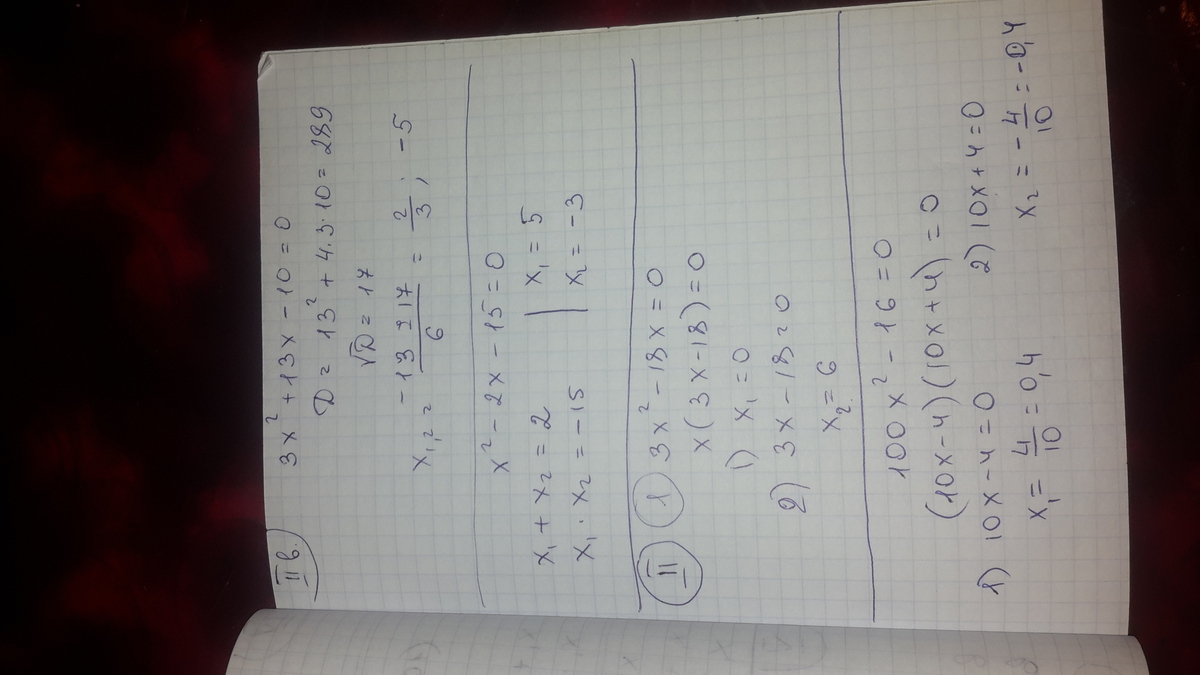 II в.
3x² + 13x - 10 = 0
D = 13² + 4·3·10 = 289
√D = 17
x₁,₂ = (-13 ± 17)/6 = 2/3; -5
x² - 2x - 15 = 0
x₁ + x₂ = 2 | x₁ = 5
x₁ · x₂ = -15 | x₂ = -3
II 1 3x² - 18x = 0
x(3x - 18) = 0
1) x₁ = 0
2) 3x - 18 = 0
x₂ = 6
100x² - 16 = 0
(10x - 4)(10x + 4) = 0
1) 10x - 4 = 0 2) 10x + 4 = 0
x₁ = 4/10 = 0,4 x₂ = - 4/10 = -0,4